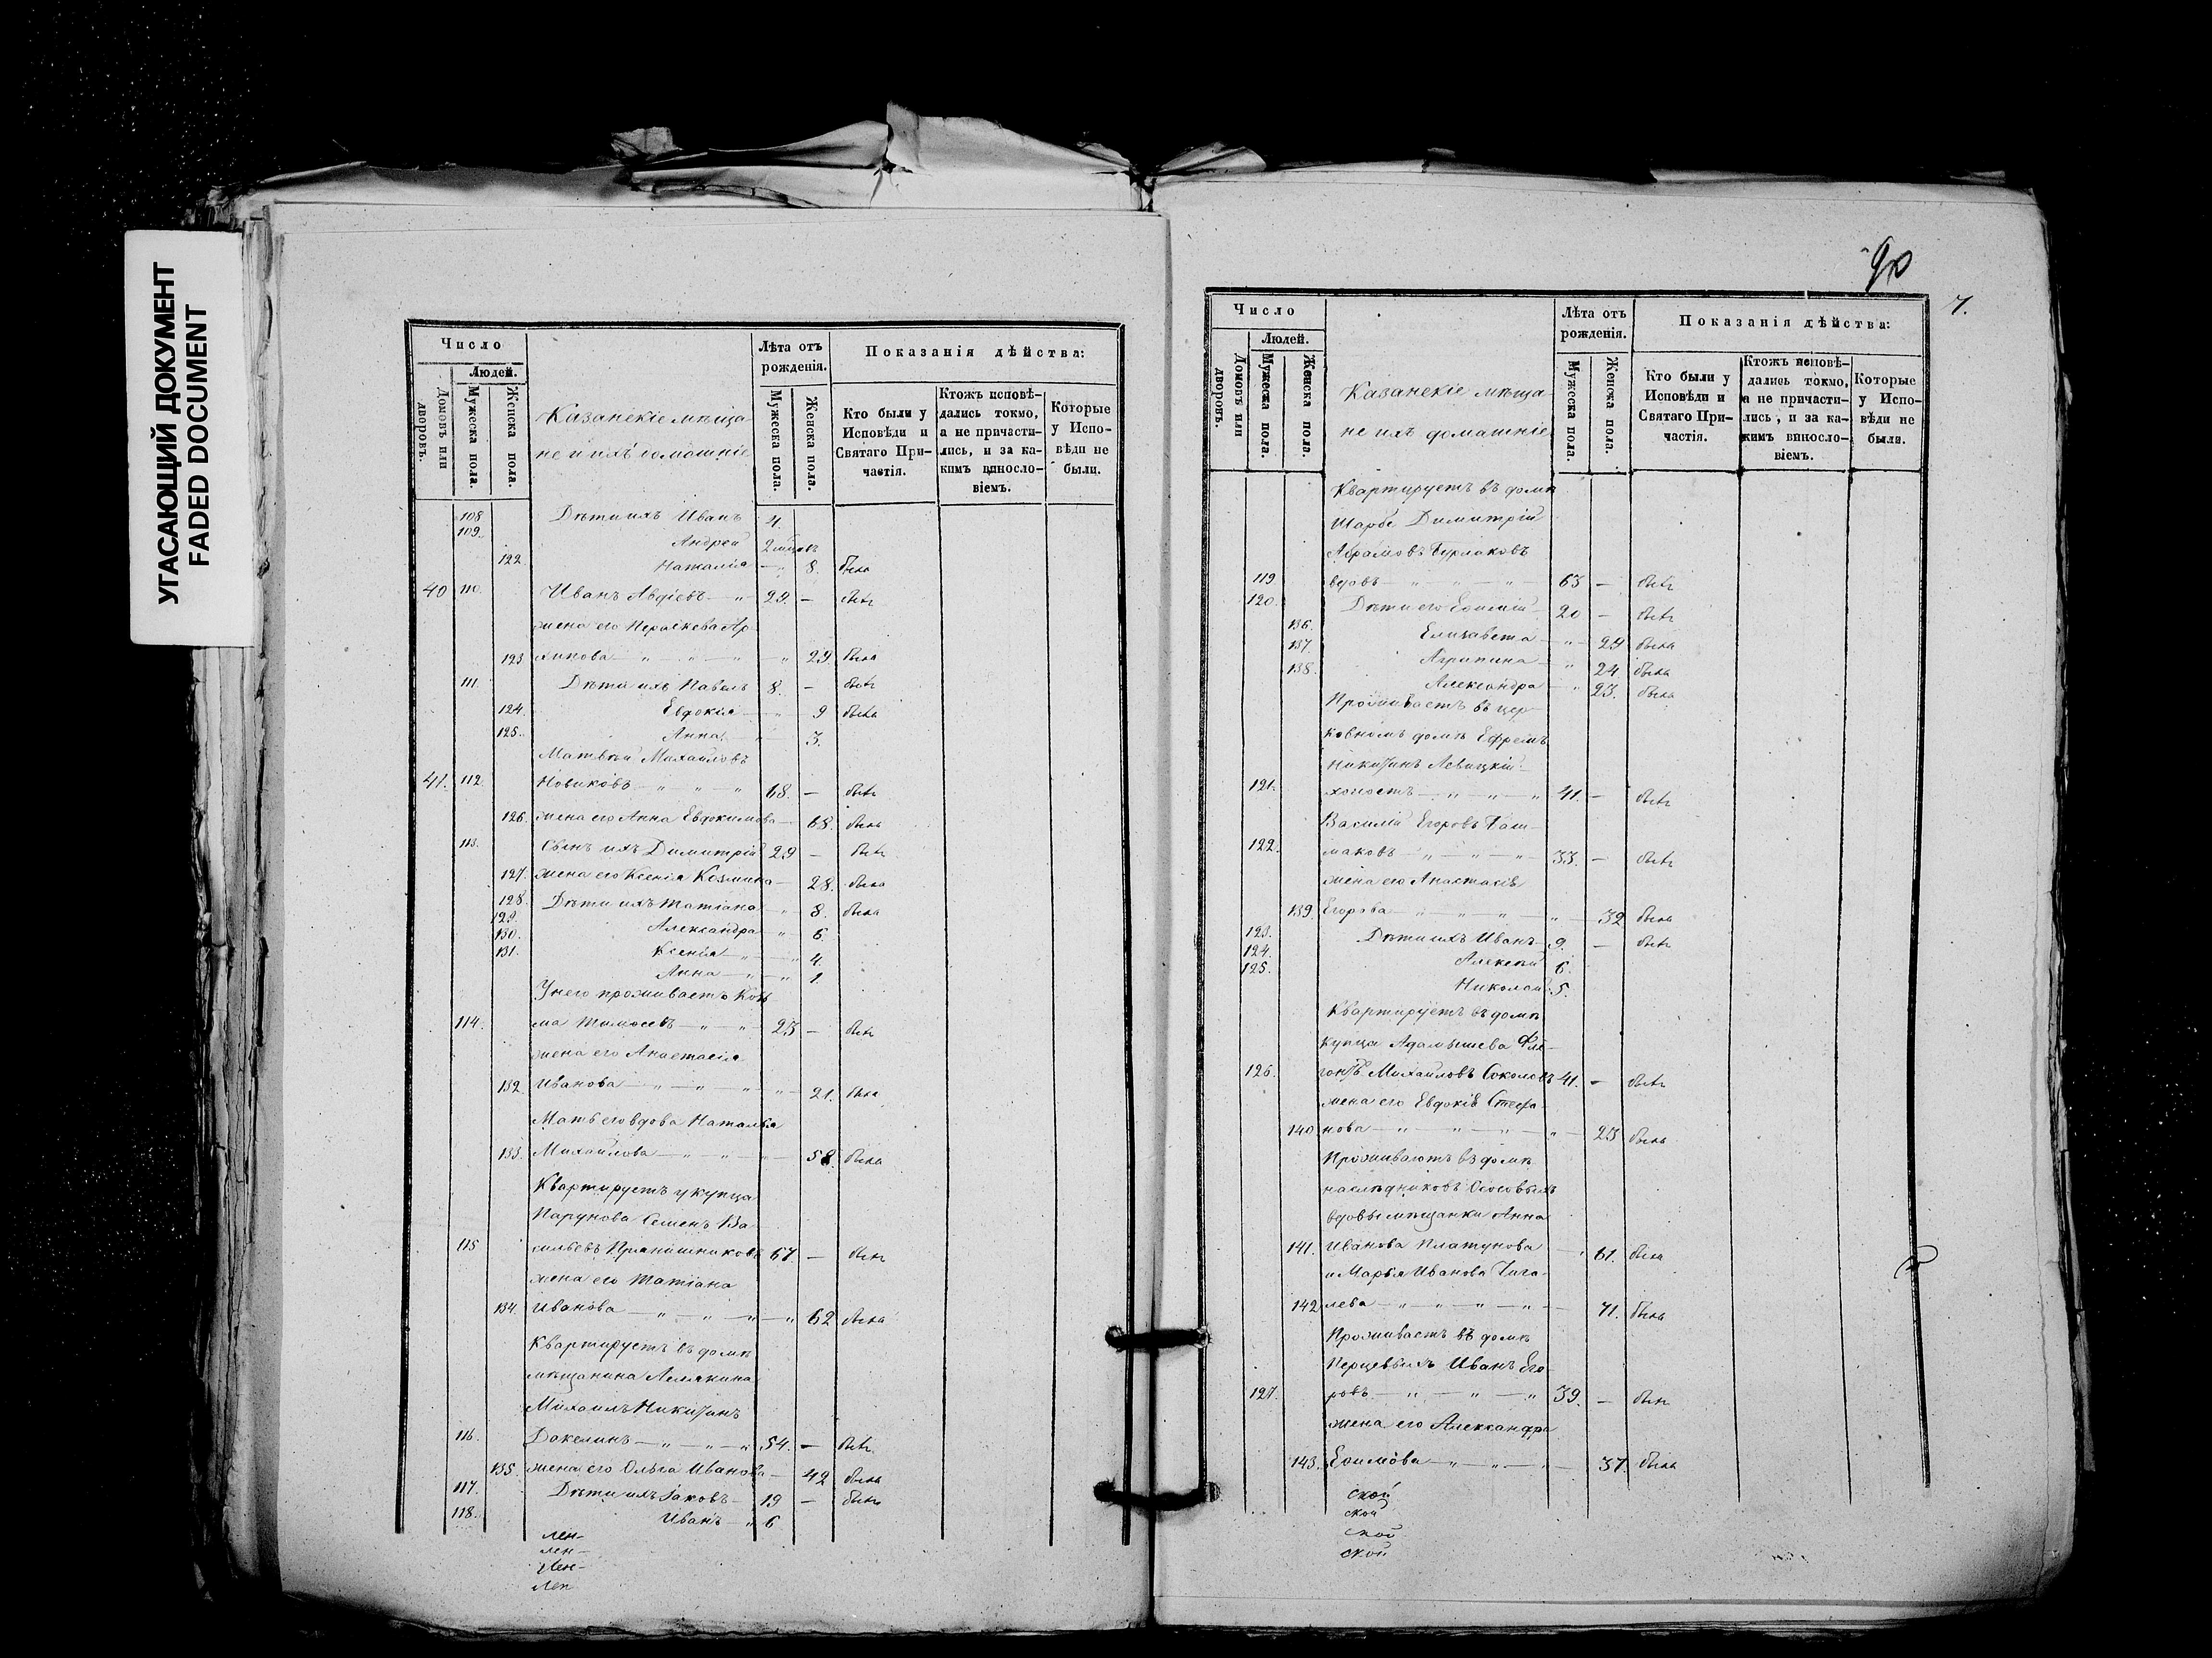 УГАСАЮЩИЙ ДОКУМЕНТ
FADED DOCUMENT
Число
Людей.
Домовъ или дворовъ.
Мужеска пола.
Женска пола.
Казанскіе мѣща-
не и ихъ домашніе
Лѣта отъ рожденія.
Мужеска пола.
Женска пола.
Показанія дѣйства:
Кто были у Исповѣди и Святаго При-частія.
Ктожъ исповѣ-дались токмо, а не причасти-лись, и за ка-кимъ винослo-віемъ.
Которые у Испо-вѣди не были.
108 Дѣти ихъ Иванъ 4.
109. Андрей 2 мѣсяцъ
122 Наталія — " 8. была
40 110. Иванъ Авдіевъ — " 29. — былъ
жена его Пераскева Ар-
123 хипова — " — " — " " 29 была
111. Дѣти ихъ Павелъ 8. — былъ
124. Евдокія — " 9 была
125. Анна — " 3.
Матвѣй Михайловъ
41. 112. Новиковъ — " — " — " 68. — былъ
126. жена его Анна Евдокимова — 68. была
113. Сынъ ихъ Димитрій 29 — былъ
127. жена его Ксенія Козмина — 28. была
128. Дѣти ихъ Татіана — " 8. была
129. Александра — " 6.
130. Ксенія — " — " 4.
131. Анна — " — " 1.
У него проживаетъ Козь-
114. ма Тимофеевъ — " — " 23 — былъ
жена его Анастасія
132. Иванова — " — " — " 21. была
Мать его вдова Наталья
133. Михайлова — " — " — 58. была
Квартируетъ у купца
Парунова Семенъ Ва-
115 сильевъ Прянишниковъ 67. — былъ
жена его Татіана
134. Иванова — " — " — " — " 62 была
Квартируетъ въ домѣ
мѣщанина
Михаилъ Никитинъ
116. — " — " — " 54. — былъ
135. жена его Ольга Иванова — 42 была
117. Дѣти ихъ Іаковъ — 19 — былъ
118. Иванъ — " 6
лен-
лен-
лен-
лен
90
7.
Число
Людей.
Домовъ или дворовъ.
Мужеска пола.
Женска пола.
Казанскіе мѣща
не ихъ домашніе
Лѣта отъ рожденія.
Мужеска пола.
Женска пола.
Показанія дѣйства:
Кто были у Исповѣди и Святаго При-частія.
Ктожъ исповѣ-дались токмо, а не причасти-лись, и за ка-кимъ винослo-віемъ.
Которые у Испо-вѣди не были.
Квартируетъ въ домѣ
Шарбе Димитрій
Абрамовъ Бурлаковъ
119 вдовъ — " — " — " — 63 — былъ
120. Дѣти его Ефимій 20 — былъ
136. Елизавета — " — 29 была
137. Агрипина — " 24 была
138. Александра — " 23. была
Проживаетъ въ цер-
ковномъ домѣ Ефремъ
Никитинъ Левицкій
121. холостъ — " — " — " 41. — былъ
Василій Егоровъ Баш-
122. маковъ — " — " — " — 33. — былъ
жена его Анастасія
139. Егорова — " — " — " — " — 32 была
123. Дѣти ихъ Иванъ 9. — былъ
124. Алексѣй 6.
125. Николай 5.
Квартируетъ въ домѣ
купца Адамышева Фле-
126. гонтъ Михайловъ Соколовъ 41. — былъ
жена его Евдокія Стефа-
140 нова — " — " — " — " — 23 была
Проживаютъ въ домѣ
наслѣдниковъ
вдовы мѣщанки Анна
141. Иванова Платунова — " 61. была
и Марья Иванова Чига-
142 лева — " — " — " — " — 71. была
Проживаетъ въ домѣ
Перцевыхъ Иванъ Его-
127. ровъ — " — " — " 39. — былъ
жена его Александра
143. Ефимова — " — " — " — 37. была
ской
ской
ской
ской